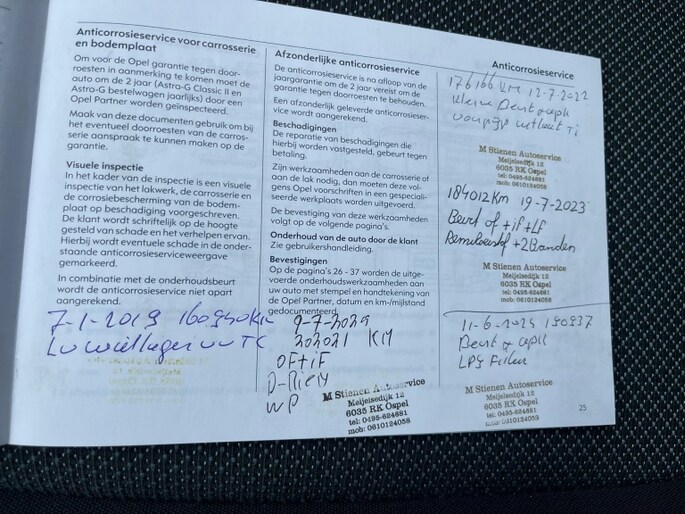 Anticorrosieservice voor carrosserie
en bodemplaat
Om voor de Opel garantie tegen door-
roesten in aanmerking te komen moet de
auto om de 2 jaar (Astra-G Classic II en
Astra-G bestelwagen jaarlijks) door een
Opel Partner worden geïnspecteerd.
Maak van deze documenten gebruik om bij
het eventueel doorroesten van de carros-
serie aanspraak te kunnen maken op de
garantie.
Visuele inspectie
In het kader van de inspectie is een visuele
inspectie van het lakwerk, de carrosserie en
de corrosiebescherming van de bodem-
plaat op beschadiging voorgeschreven.
De klant wordt schriftelijk op de hoogte
gesteld van schade en het verhelpen ervan.
Hierbij wordt eventuele schade in de onder-
staande anticorrosieserviceweergave
gemarkeerd.
In combinatie met de onderhoudsbeurt
wordt de anticorrosieservice niet apart
aangerekend.
7-1-2019 160950 KM
Afzonderlijke anticorrosieservice
De anticorrosieservice is na afloop van de
jaargarantie om de 2 jaar vereist om de
garantie tegen doorroesten te behouden.
Een afzonderlijk geleverde anticorrosieser-
vice wordt aangerekend.
Beschadigingen
De reparatie van beschadigingen die
hierbij worden vastgesteld, gebeurt tegen
betaling.
Zijn werkzaamheden aan de carrosserie of
aan de lak nodig, dan moeten deze vol-
gens Opel voorschriften in een gespeciali-
seerde werkplaats worden uitgevoerd.
De bevestiging van deze werkzaamheden
volgt op de volgende pagina's.
Onderhoud van de auto door de klant
Zie gebruikershandleiding.
Bevestigingen
Op de pagina's 26 - 37 worden de uitge-
voerde onderhoudswerkzaamheden aan
uw auto met stempel en handtekening van
de Opel Partner, datum en km-/mijlstand
gedocumenteerd.
202021 KM
OF+iF
WP
M Stienen Autoservice
Meijelsedijk 12
6035 RK Ospel
tel: 0495-624681
mob: 0610124058
Anticorrosieservice
176166 KM 12-7-2022
Kleine Beurt
M Stienen Autoservice
Meijelsedijk 12
6035 RK Ospel
tel: 0495-624681
mob: 0610124058
184012 KM 19-7-2023
Beurt of +if +LF
Remvloeistof +2 Banden
M Stienen Autoservice
Meijelsedijk 12
6035 RK Ospel
tel: 0495-624681
mob: 0610124058
190937
Beurt
LPG Filter
M Stienen Autoservice
Meijelsedijk 12
6035 RK Ospel
tel: 0495-624681
mob: 0610124058
25